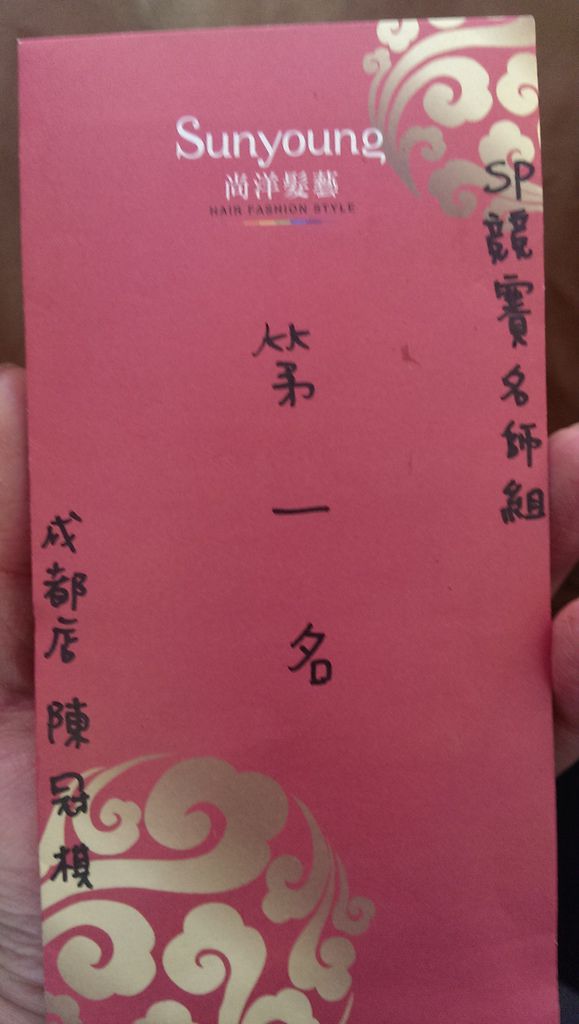 Sunyoung
尚洋髮藝
HAIR FASHION STYLE
SP競賽名師組
第一名
成都店 陳冠棋